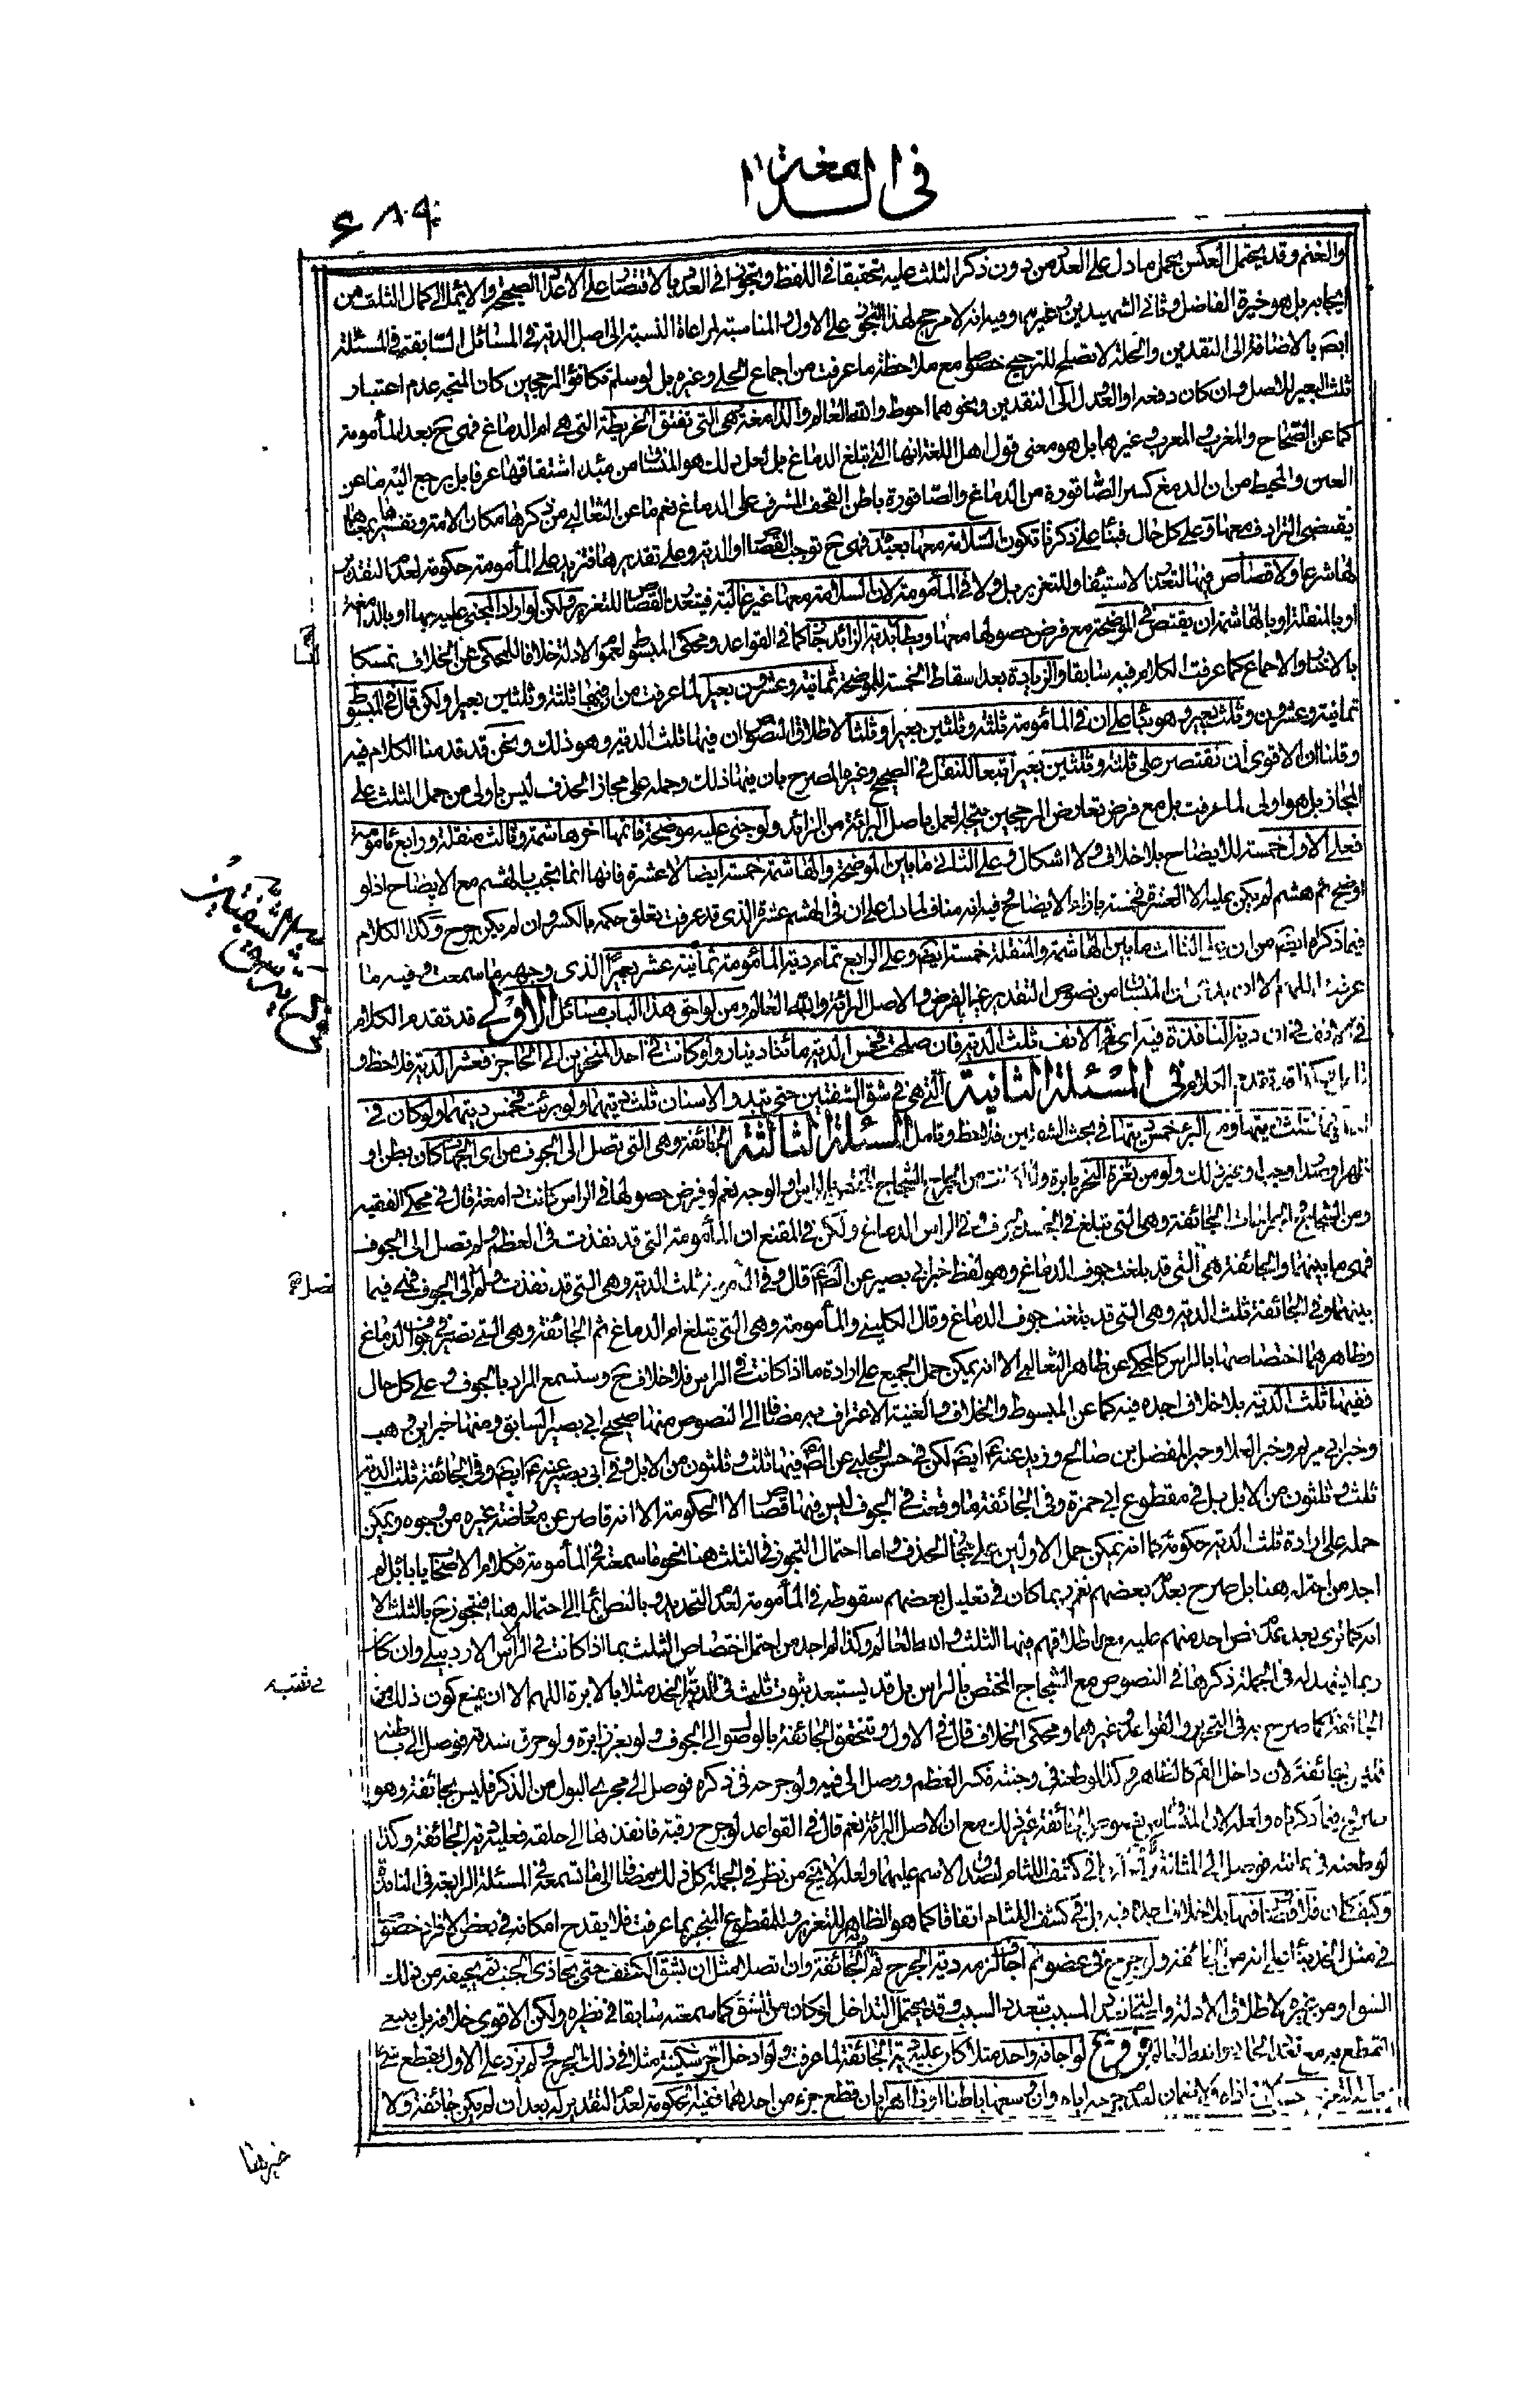 في الدامغة
٦٨٩
والغنم وقد يحتمل العكس بحمل ما دل على العدد من دون ذكر الثلث عليه تحقيقا في اللفظ وتجوزا في العدد بالاقتصار على الاعداد الصحيحة والايماء الى كمال الثلث من
ايجابه بل هو خيرة الفاضل وثاني الشهيدين وغيرهما وفيه انه لا مرجح لهذا التجوز على الاول والمناسبة لمراعاة النسبة الى اصل الدية في المسائل السابقة وفي المسئلة
ايضا بالاضافة الى النقدين والحلة لا تصلح للترجيح خصوصا مع ملاحظة ما عرفت من اجماع الحلي وغيره بل لو سلم تكافؤ المرجحين كان المتجه عدم اعتبار
ثلث البعير للاصل وان كان دفعه او العدول الى النقدين ونحوهما احوط والله العالم والدامغة وهي التي تفتق الخريطة التي هي ام الدماغ فهي ح بعد المأمومة
كما عن الصحاح والمغرب والمعرب وغيرهما بل هو معنى قول اهل اللغة انها التي تبلغ الدماغ بل لعل ذلك هو المنساق من مبدء اشتقاقها عرفا بل يرجع اليه ما عن
العين والمحيط من ان الدمغ كسر الصاقورة من الدماغ والصاقورة باطن القحف المشرف على الدماغ نعم ما عن الثعالبي من ذكرها مكان الامة وتفسيرها بمعناها
يقتضي الترادف معها وعلى كل حال فبناء على ذكرنا تكون السلامة معها بعيدة فهي ح توجب القصاص او الدية وعلى تقديرها فتزيد على المأمومة حكومة لعدم التقدير
لها شرعا ولا قصاص فيها لتعذر الاستيفاء وللتغرير بل ولا في المأمومة لان السلامة معها غير غالبة فيتعذر القصاص للتغرير ولكن لو اراد المجني عليه بها او بالدامغة
او بالمنقلة او بالهاشمة ان يقتص في الموضحة مع فرض حصولها معها ويطالب بدية الزائد جاز كما في القواعد ومحكي المبسوط لعموم الادلة خلافا للمحكي عن الخلاف تمسكا
بالاخبار والاجماع كما عرفت الكلام فيه سابقا والزيادة بعد اسقاط الخمسة للموضحة ثمانية وعشرون بعيرا لما عرفت من ان فيها ثلثة وثلثين بعيرا ولكن قال في المبسوط
ثمانية وعشرون وثلث بعير وهو بناء على ان في المأمومة ثلثة وثلثين بعيرا وثلثا لاطلاق النصوص ان فيها ثلث الدية وهو ذلك ونحن قد قدمنا الكلام فيه
وقلنا ان الاقوى ان نقتصر على ثلثة وثلثين بعيرا تبعا للنقل في الصحيح وغيره المصرح بان فيها ذلك وحمله على مجاز الحذف ليس باولى من حمل الثلث على
المجاز بل هو اولى لما عرفت بل مع فرض تعارض المرجحين يتجه العمل باصل البرائة من الزائد ولو جنى عليه موضحة فاتمها اخر هاشمة وثالث منقلة ورابع مأمومة
فعلى الاول خمسة للايضاح بلا خلاف ولا اشكال وعلى الثاني ما بين الموضحة والهاشمة خمسة ايضا لا عشرة فانها انما تجب بالهشم مع الايضاح اذ لو
اوضح ثم هشم لم يكن عليه الا العشرة خمسة بازاء الايضاح وفيه انه مناف لما دل على ان في الهشم عشرة الذي قد عرفت تعلق حكمه بالكسر وان لم يكن جرح وكذا الكلام
فيما ذكراه ايضا من ان على الثالث ما بين الهاشمة والمنقلة خمسة ايضا وعلى الرابع تمام دية المأمومة ثمانية عشر بعيرا الذي وجهه ما سمعت وفيه ما
عرفت اللهم الا ان يدعى ان المنساق من نصوص التقدير غير الفرض والاصل البرائة والله العالم ومن لواحق هذا الباب مسائل الاولى قد تقدم الكلام
في ان دية النافذة فيه اي في الانف ثلث الدية فان صلحت فخمس الدية مأتا دينار ولو كانت في احد المنخرين الى الحاجز فعشر الدية فلاحظ و
المسئلة الثانية التي هي في شق الشفتين حتى تبدو الاسنان ثلث ديتهما ولو برئت فخمس ديتهما ولو كان في
فلاحظ وتامل المسئلة الثالثة الجائفة وهي التي تصل الى الجوف من اي الجهات كان بطن او
ظهر او صدر او جنب او غير ذلك ولو من ثغرة النحر بابرة نعم لو فرض حصولها في الراس كانت دامغة قال في محكي الفقيه
ومن الشجاج والجراحات الجائفة وهي التي تبلغ في الجسد الجوف وفي الراس الدماغ ولكن في المقنع ان المأمومة التي قد نفذت في العظم ولم تصل الى الجوف
فهي ما بينهما والجائفة هي التي قد بلغت جوف الدماغ وهو لفظ خبر ابي بصير عن الصادق ع قال وفي المأمومة ثلث الدية وهي التي قد نفذت ولم تصل الى الجوف فهي فيما
بينهما وفي الجائفة ثلث الدية وهي التي قد بلغت جوف الدماغ وقال الكليني والمأمومة وهي التي تبلغ ام الدماغ ثم الجائفة وهي التي تصير في جوف الدماغ
وظاهرهما اختصاصها بالراس كالمحكي عن ظاهر الثعالبي الا انه يمكن حمل الجميع على ارادة ما اذا كانت في الراس فلا خلاف ح وستسمع المراد بالجوف وعلى كل حال
ففيها ثلث الدية بلا خلاف اجده فيه كما عن المبسوط والخلاف والغنية الاعتراف به مضافا الى النصوص منها صحيح ابي بصير السابق ومنها خبر ابن وهب
وخبر ابي مريم وخبر العلا وخبر المفضل بن صالح وزيد عنه ع ايضا لكن في حسن الحلبي عن الص فيها ثلث وثلثون من الابل وفي ابي بصير عنه ع ايضا وفي الجائفة ثلث الدية
ثلث وثلثون من الابل بل في مقطوع ابي حمزة وفي الجائفة ما وقعت في الجوف ليس فيها قصاص الا الحكومة الا انه قاصر عن معارضة غيره من وجوه ويمكن
حمله على ارادة ثلث الدية حكومة كما انه يمكن حمل الاولين على مجاز الحذف واما احتمال التجوز في الثلث هنا نحو ما سمعته في المأمومة فكلام الاصحاب ياباه بل لم
اجد من احتمله ههنا بل صرح بعدمه بعضهم نعم ربما كان في تعليل بعضهم سقوطه في المأمومة لعدم التحديد به بالنص ايماء الى احتماله هنا فتجوز ح بالثلث الا
انه كما ترى بعد عدم نص احد منهم عليه مع اطلاقهم فيها الثلث والله العالم وكذا لم اجد من احتمل اختصاص الثلث بما اذا كانت في الراس الا الاردبيلي وان كان
ربما يشهد له في الجملة ذكرها في النصوص مع الشجاج المختص بالراس بل قد يستبعد ثبوت ثلث الدية في ثقب الخد مثلا بالابرة اللهم الا ان يمنع كون ذلك من
الجائفة كما صرح به في التحرير والقواعد وغيرهما ومحكي الخلاف قال في الاول وتتحقق الجائفة بالوصول الى الجوف ولو بغرز ابرة ولو خرق شدقه فوصل الى باطنه
فليس بجائفة لان داخل الفم كالظاهر وكذا لو طعنه في وجنته فكسر العظم ووصل الى فيه ولو جرحه في ذكره فوصل الى مجرى البول من الذكر فليس بجائفة وهو
صريح فيما ذكرناه ولعله لان المنساق من نصوص الجائفة غير ذلك مع ان الاصل البرائة نعم قال في القواعد لو جرح رقبته فانفذها الى حلقه فعليه دية الجائفة وكذا
لو طعنه في عانته فوصل الى المثانة في كشف اللثام لصدق الاسم عليهما ولعله لا يخ من نظر في الجملة كل ذلك مضافا الى ما تسمعه في المسئلة الرابعة في النافذة
وكيف كان فلا قصاص فيها بلا خلاف اجده فيه بل في كشف اللثام اتفاقا كما هو الظاهر للتغرير وللمقطوع المنجبر بما عرفت فلا يقدح امكانه في بعض الافراد خصوصا
في مثل الخد بناء على انه من الجائفة ولو جرح في عضو ثم اجاف لزمه دية الجرح ودية الجائفة وان اتصلا مثل ان يشق الكتف حتى يحاذي الجنب ثم يجيفه من ذلك
الشق او من غيره لاطلاق الادلة والتعدد المسبب بتعدد السبب وقد يحتمل التداخل لو كان من الشق كما سمعته سابقا في نظيره ولكن الاقوى خلافه بل ينبغي
القطع به مع تعدد الجاني والله العالم فروع لو اجافه واحد مثلا كان عليه دية الجائفة لما عرفت ولو ادخل اخر سكينه مثلا في ذلك الجرح ولم يزد على الاول بقطع شيء
فعليه التعزير حسب لانه اذاه ولا ضمان لعدم جرحه اياه وان وسعها باطنا او ظاهرا بان قطع جزء من احدهما ففيه الحكومة لعدم التقدير له بعد ان لم يكن جائفة ولا